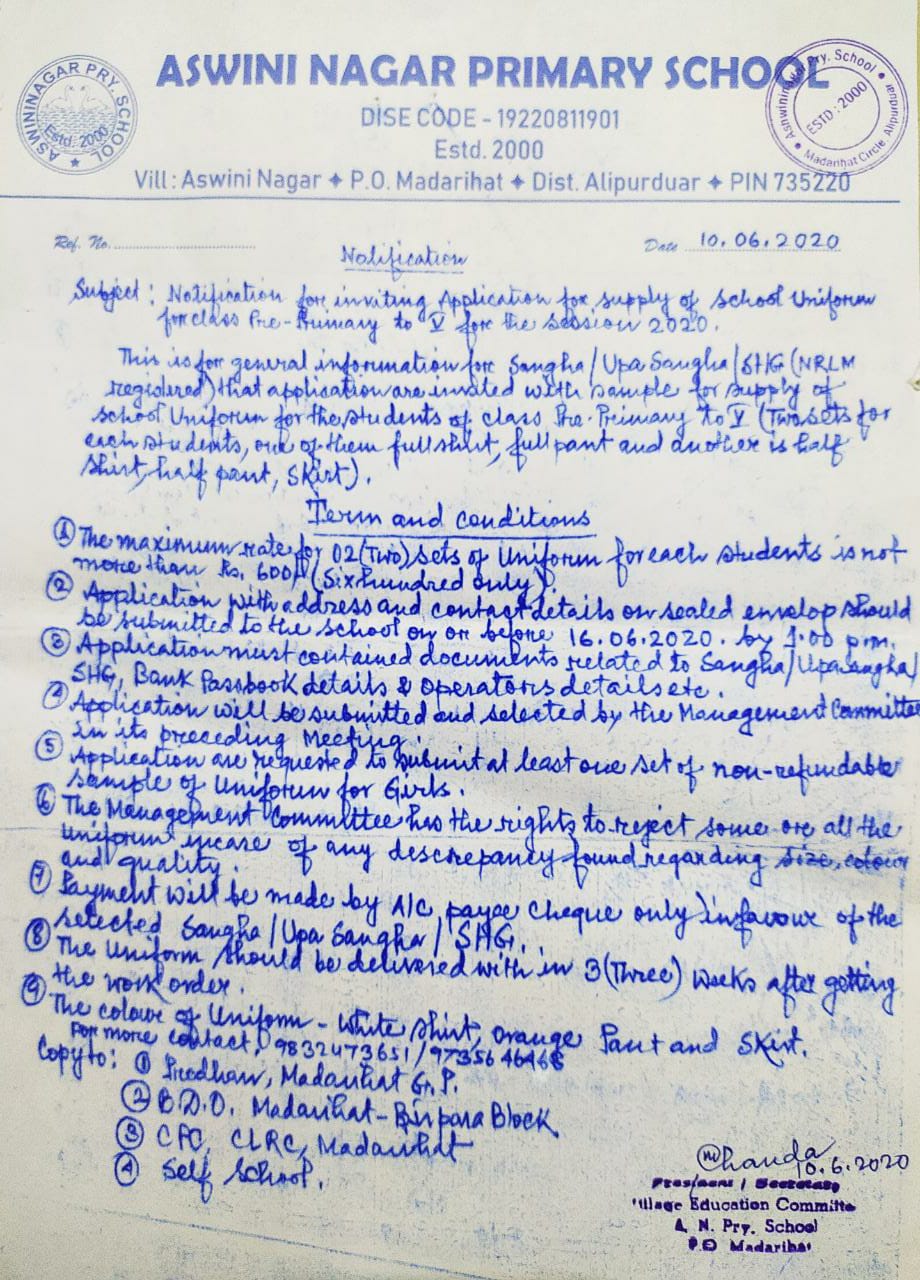 ASWINI NAGAR PRIMARY SCHOOL
ASWININAGAR PRY. SCHOOL
Estd. 2000
Aswininagar Pry. School
ESTD: 2000
Madarihat Circle Alipurduar
DISE CODE - 19220811901
Estd. 2000
Vill : Aswini Nagar ✦ P.O. Madarihat ✦ Dist. Alipurduar ✦ PIN 735220
Ref. No.
Date 10.06.2020
Notification
Subject : Notification for inviting Application for supply of School Uniform
for class Pre-Primary to V for the session 2020.
This is for general information for Sangha/Upa Sangha/SHG (NRLM
registered) that application are invited with sample for supply of
school Uniform for the students of class Pre-Primary to V (Two sets for
each students, one of them full shirt, full pant and another is half
shirt, half pant, Skirt).
Term and conditions
① The maximum rate for 02 (Two) sets of Uniform for each students is not
more than Rs. 600/- (Six hundred only).
② Application with address and contact details on sealed envelop should
be submitted to the school on or before 16.06.2020. by 1.00 p.m.
③ Application must contained documents related to Sangha/Upa Sangha/
SHG, Bank Passbook details & operators details etc.
④ Application will be submitted and selected by the Management Committee
in its preceding Meeting.
⑤ Application are requested to submit at least one set of non-refundable
sample of Uniform for Girls.
⑥ The Management Committee has the rights to reject some or all the
uniform incase of any descrepancy found regarding size, colour
and quality.
⑦ Payment will be made by A/C payee cheque only infavour of the
selected Sangha/Upa Sangha/SHG.
⑧ The Uniform should be delivered with in 3 (Three) weeks after getting
the work order.
⑨ The colour of Uniform - White Shirt, Orange Pant and Skirt.
For more contact, 9832473651/9735646468
Copy to : ① Prodhan, Madarihat G.P.
② B.D.O. Madarihat-Birpara Block
③ CPC, CLRC, Madarihat
④ Self School.
Chanda
10.6.2020
President / Secretary
Village Education Committe
A. N. Pry. School
P.O Madarihat